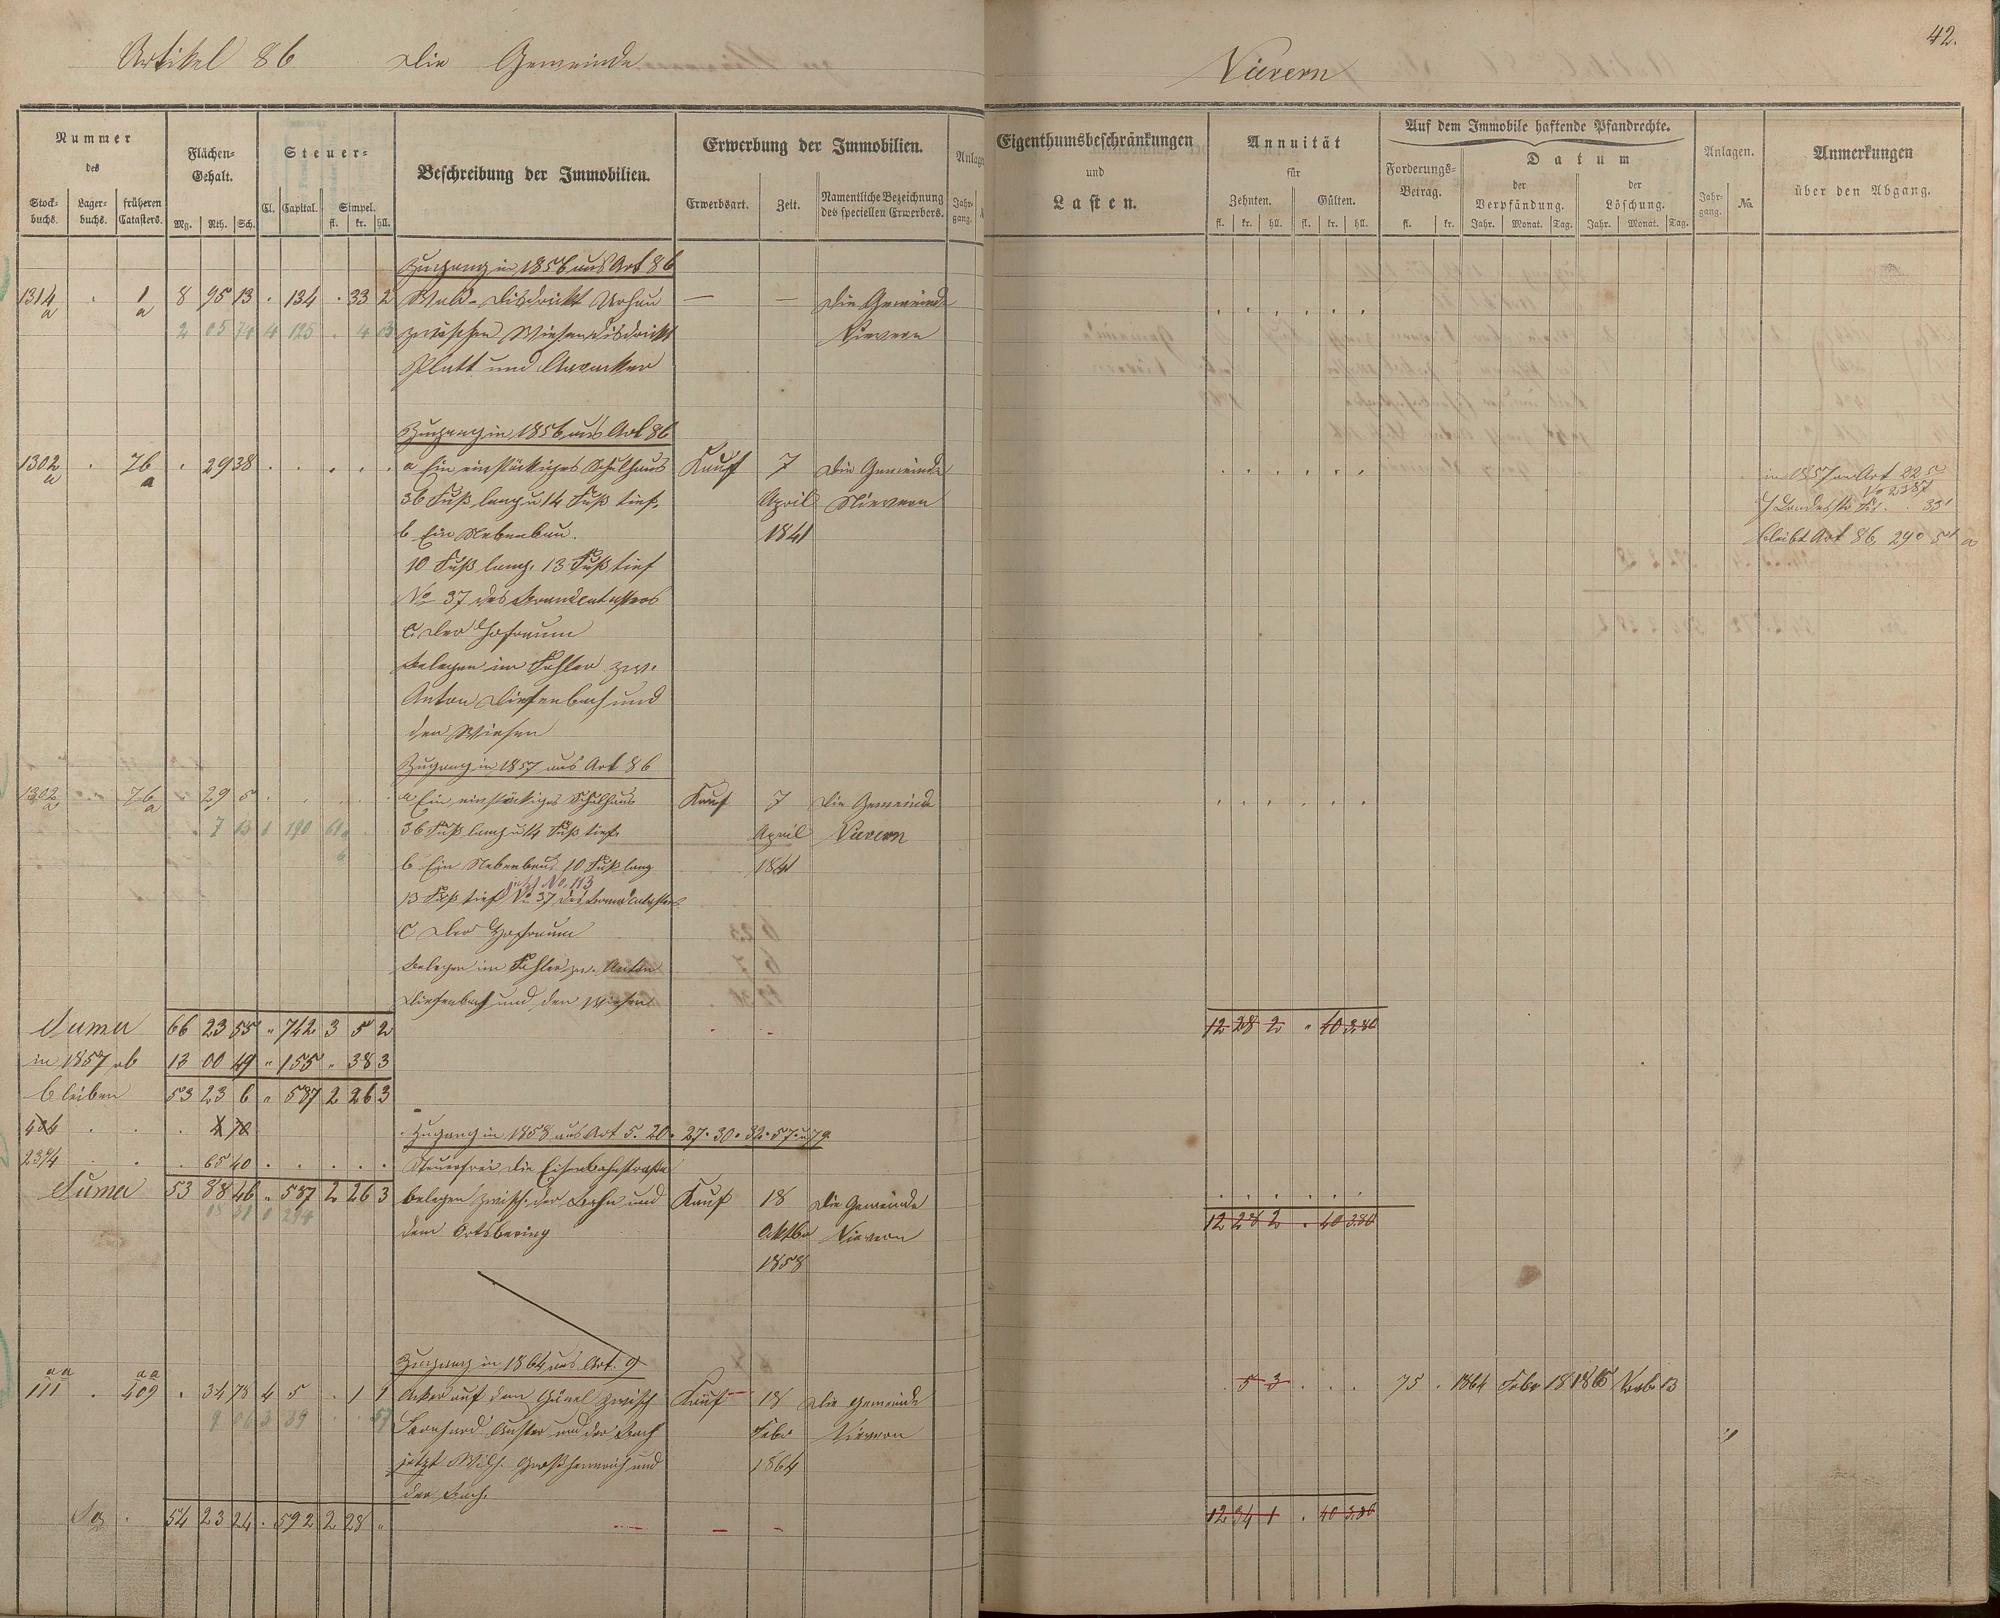 42.
Artikel 86 Die Gemeinde Nievern
Nummer des
Stock-buchs. Lager-buchs. früheren Catasters.
Flächen-Gehalt.
Mg. Rth. Sch.
Steuer-
Cl. Capital. Simpel.
fl. kr. hll.
Beschreibung der Immobilien.
Erwerbung der Immobilien.
Erwerbsart. Zeit. Namentliche Bezeichnung des speciellen Erwerbers.
Jahr-gang.
Eigenthumsbeschränkungen und Lasten.
Annuität für
Zehnten. Gülten.
fl. kr. hll. fl. kr. hll.
Auf dem Immobile haftende Pfandrechte.
Forderungs-Betrag.
fl. kr.
Datum
der Verpfändung. der Löschung.
Jahr. Monat. Tag. Jahr. Monat. Tag.
Anlagen.
Jahr-gang. No.
Anmerkungen über den Abgang.
Zugang in 1856 aus Art 86
1314 a 1 a 8 95 13 . 134 . 33 2 Wald-Disdrickt — — Die Gemeinde
zwischen Wiesendisdrickt Nievern
Platt und
Zugang in 1856 aus Art 86
1302 a 76 a . 29 38 a Ein einstöckiges Schulhaus Kauf 7 Die Gemeinde
36 Fuß lang u 14 Fuß tief. April Nievern
b Ein Nebenbau. 1841
10 Fuß lang. 13 Fuß tief
No 37 des Brandcatasters
C. Der Hofraum
Belegen im Fahler zw.
Anton Diefenbach und
den Wiesen
in 1857 an Art 225
No 2387
bleibt Art 86 29 5
Zugang in 1857 aus Art 86
1302 a 76 a . 29 5 a Ein einstöckiges Schulhaus Kauf 7 Die Gemeinde
7 13 1 190
36 Fuß lang u 14 Fuß tief. April Nievern
b Ein Nebenbau 10 Fuß lang 1841
jetzt No. 113
13 Fuß tief No 37 des Brandcatasters
C Der Hofraum
Belegen im Fahler zw. Anton
Diefenbach und den Wiesen
Suma 66 23 55 " 742 3 5 2 12 28 2 " 40 3.80
in 1857 ab 13 00 49 " 155 " 38 3
bleiben 53 23 6 " 587 2 26 3
Zugang in 1858 aus Art 5. 20. 27. 30. 32. 57. u 79.
2394 . . . 65 40 Steuerfrei Die Eisenbahnstraße
Suma 53 88 46 " 587 2 26 3 belegen zwisch. der Bahn und Kauf 18 Die Gemeinde
dem Ortsbering Oktbr Nievern 12 28 2 . 40 3.80
1858
Zugang in 1864 aus Art. 9
111 aa . 409 aa . 34 78 4 5 . 1 1 Acker auf dem zwisch Kauf 18 Die Gemeinde . 5 3 . . . 75 . 1864 Febr 18 13
9 06 3 39
Bernhard und der Bach Febr Nievern
jetzt Wilh. und 1864
der Bach.
Sa . 54 23 24 . 592 2 28 " 12 34 1 . 40 3.80